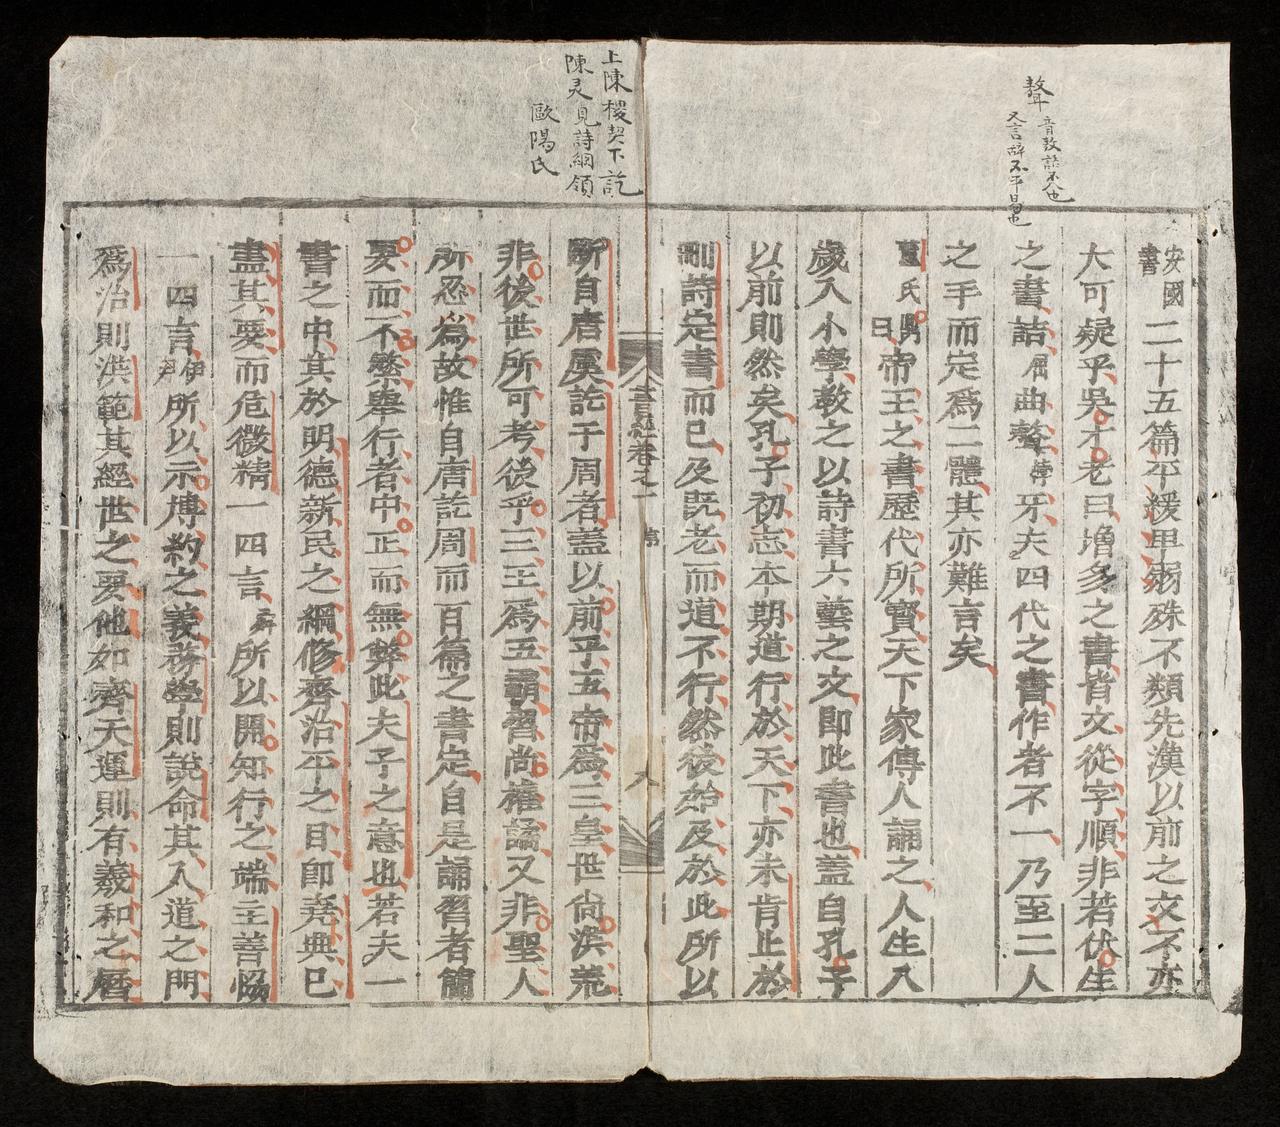 聱音敖語不入也
又言辭不平易也
安國書二十五篇平緩卑弱殊不類先漢以前之文不亦
大可疑乎吳才老曰增多之書皆文從字順非若伏生
之書詰屈曲聱牙夫四代之書作者不一乃至二人
之手而定爲二體其亦難言矣
董氏鼎曰帝王之書歷代所寳天下家傳人誦之人生八
歲入小學教之以詩書六藝之文即此書也盖自孔子
以前則然矣孔子初志本期道行於天下亦未肯止於
刪詩定書而已及旣老而道不行然後始及於此所以
書經卷之一 序 八
上陳稷契下訖
陳灵見詩綱領
歐陽氏
斷自唐虞訖于周者盖以前乎五帝爲三皇世尙洪荒
非後世所可考後乎三王爲五霸習尙權譎又非聖人
所忍爲故惟自唐訖周而百篇之書定自是誦習者簡
要而不繁舉行者中正而無弊此夫子之意也若夫一
書之中其於明德新民之綱修齊治平之目即堯典已
盡其要而危微精一四言所以開知行之端主善協
一四言伊尹所以示博約之義務學則說命其入道之門
爲治則洪範其經世之要他如齊天運則有羲和之曆